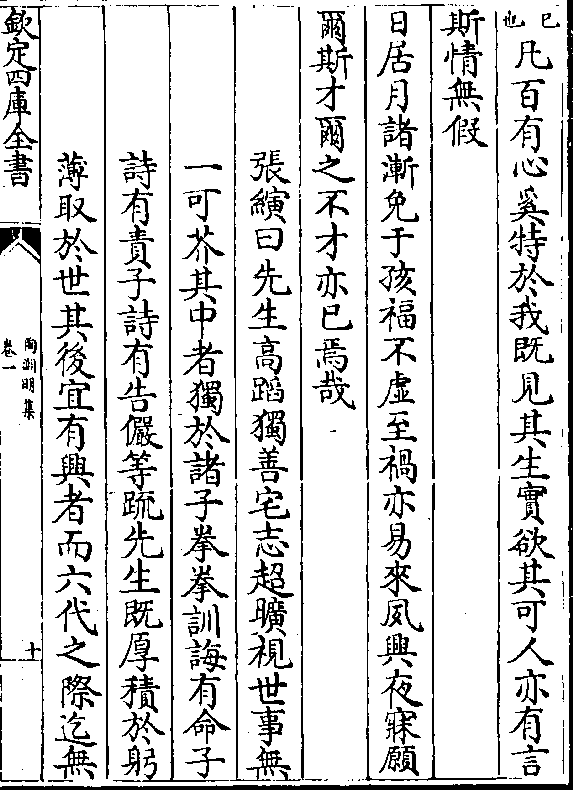 已也凡百有心奚特於我既見其生實欲其可人亦有言
斯情無假
日居月諸漸免于孩福不虚至禍亦易來夙興夜寐願
爾斯才爾之不才亦已焉哉
張縯曰先生高蹈獨善宅志超曠視世事無
一可芥其中者獨於諸子拳拳訓誨有命子
詩有責子詩有告儼等疏先生既厚積於躬
薄取於世其後宜有興者而六代之際迄無
欽定四庫全書
陶淵明集
卷一
十